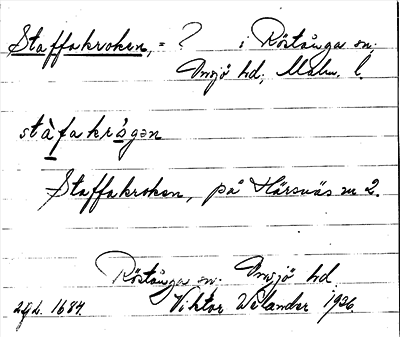 Staffakroken, = ? i Röstånga sn;
Onsjö hd; Malm. l.
stàfakrǻgən
Staffakroken, på Härsnäs nr 2.
Röstånga sn. Onsjö hd.
Viktor Welander 1936.
1684.